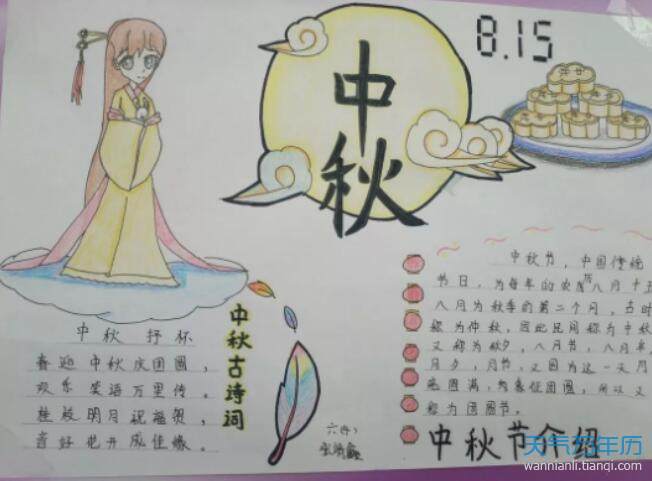 中秋
8.15
中秋 抒怀
春迎中秋庆团圆，
欢乐笑语万里传。
桂殿明月祝福贺，
喜好花开成佳缘。
中秋古诗词
中秋节，中国传统
节日，为每年的农历八月十五
八月为秋季的第二个月，古时
称为仲秋，因此民间称为中秋
又称为秋夕，八月节，八月半，
月夕，月节，又因为这一天月
亮圆满，象征团圆，所以又
称为团圆节。
中秋节介绍
天气万年历
wannianli.tianqi.com